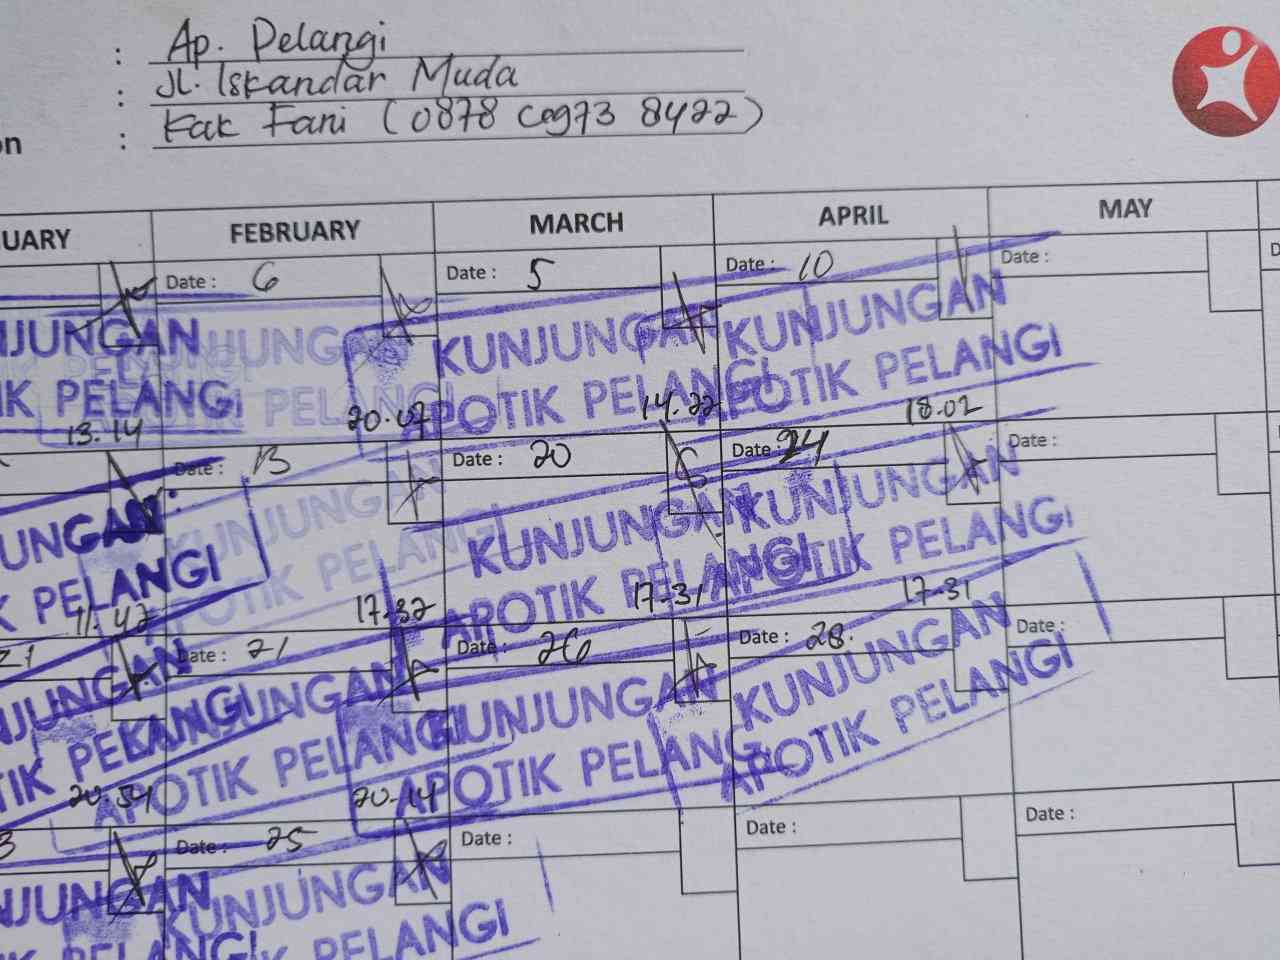 : Ap. Pelangi
: Jl. Iskandar Muda
on : Kak Fani (0878 6973 8422)
UARY FEBRUARY MARCH APRIL MAY
Date : 6 Date : 5 Date : 10 Date : D
NJUNGAN KUNJUNGAN KUNJUNGAN KUNJUNGAN
IK PELANGI PELANGI APOTIK PELANGI APOTIK PELANGI
13.14 20.07 14.22 18.02
Date : 13 Date : 20 Date : 24 Date :
UNGAN KUNJUNGAN KUNJUNGAN KUNJUNGAN
K PELANGI APOTIK PELANGI APOTIK PELANGI APOTIK PELANGI
11.42 17-32 17-31 17-31
21 Date : 21 Date : 26 Date : 28. Date :
NJUNGAN KUNJUNGAN KUNJUNGAN KUNJUNGAN
TIK PELANGI APOTIK PELANGI APOTIK PELANGI APOTIK PELANGI
20.54 20-14
3 Date : 25 Date : Date : Date :
NJUNGAN KUNJUNGAN
K PELANGI K PELANGI